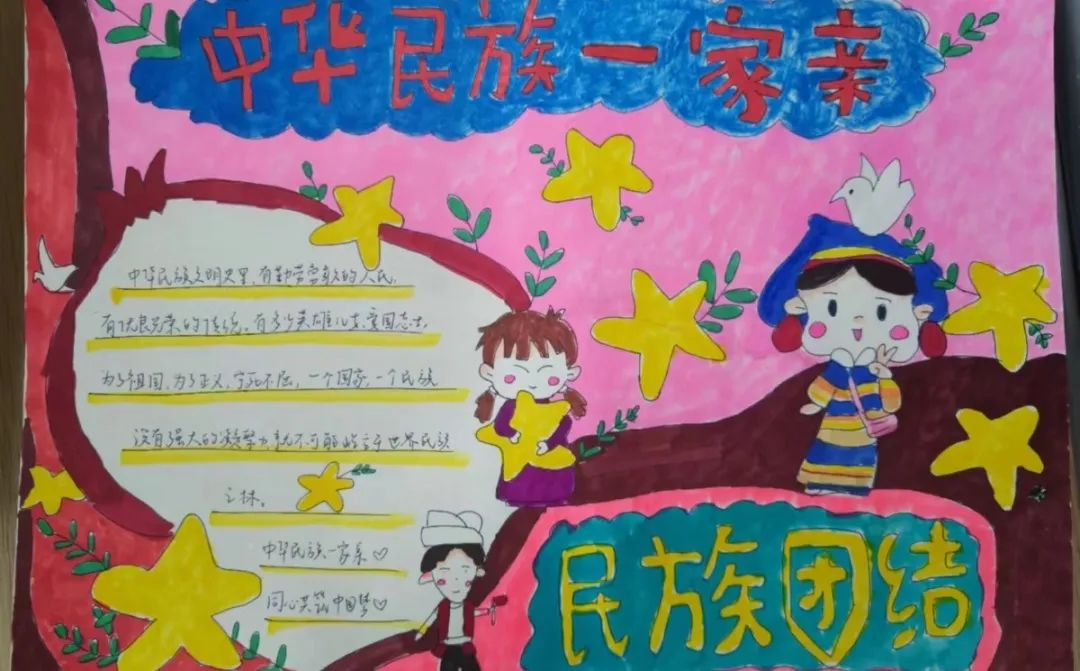 中华民族一家亲
中华民族文明史里，有勤劳勇敢的人民，
有优良光荣的传统，有多少英雄儿女，爱国志士，
为了祖国，为了正义，宁死不屈，一个国家，一个民族
没有强大的凝聚力就不可能屹立于世界民族
之林。
中华民族一家亲
同心共筑中国梦
民族团结